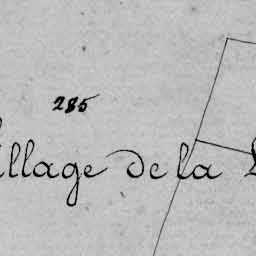 285
illage de la